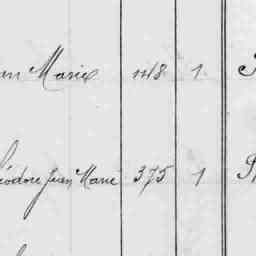 Marie 148 1
éodore Jean Marie 375 1